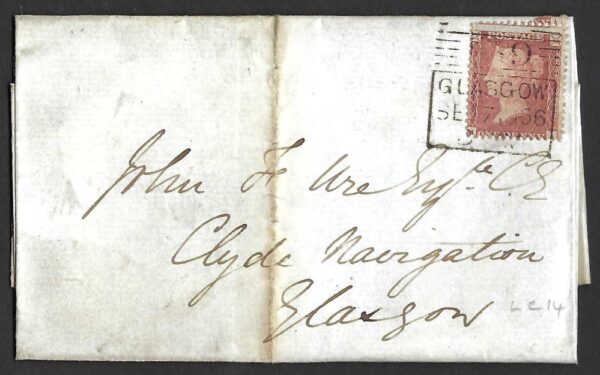 POSTAGE
159
GLASGOW
SE 7 1856
John F Ure Esqre C.E
Clyde Navigation
Glasgow
LC14